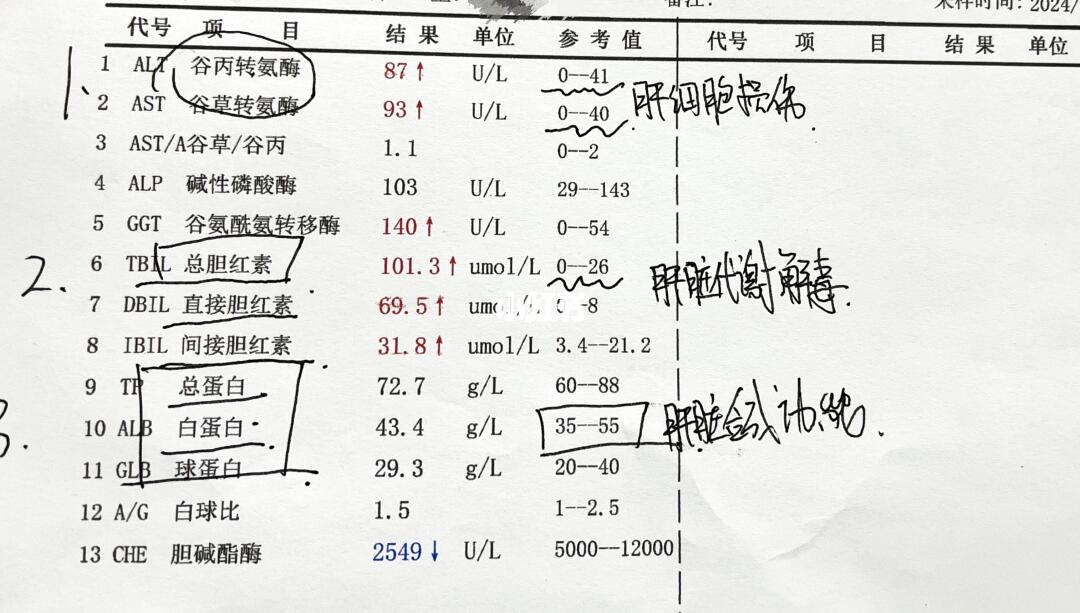 采样时间: 2024/
代号 项 目 结 果 单位 参 考 值 代号 项 目 结 果 单位
1. 1 ALT 谷丙转氨酶 87↑ U/L 0--41
2 AST 谷草转氨酶 93↑ U/L 0--40 肝细胞损伤.
3 AST/A谷草/谷丙 1.1 0--2
4 ALP 碱性磷酸酶 103 U/L 29--143
5 GGT 谷氨酰氨转移酶 140↑ U/L 0--54
2. 6 TBIL 总胆红素 101.3↑ umol/L 0--26 肝脏代谢解毒.
7 DBIL 直接胆红素 69.5↑ umol/L 0--8
8 IBIL 间接胆红素 31.8↑ umol/L 3.4--21.2
9 TP 总蛋白 72.7 g/L 60--88
3. 10 ALB 白蛋白 43.4 g/L 35--55 肝脏合成功能.
11 GLB 球蛋白 29.3 g/L 20--40
12 A/G 白球比 1.5 1--2.5
13 CHE 胆碱酯酶 2549↓ U/L 5000--12000